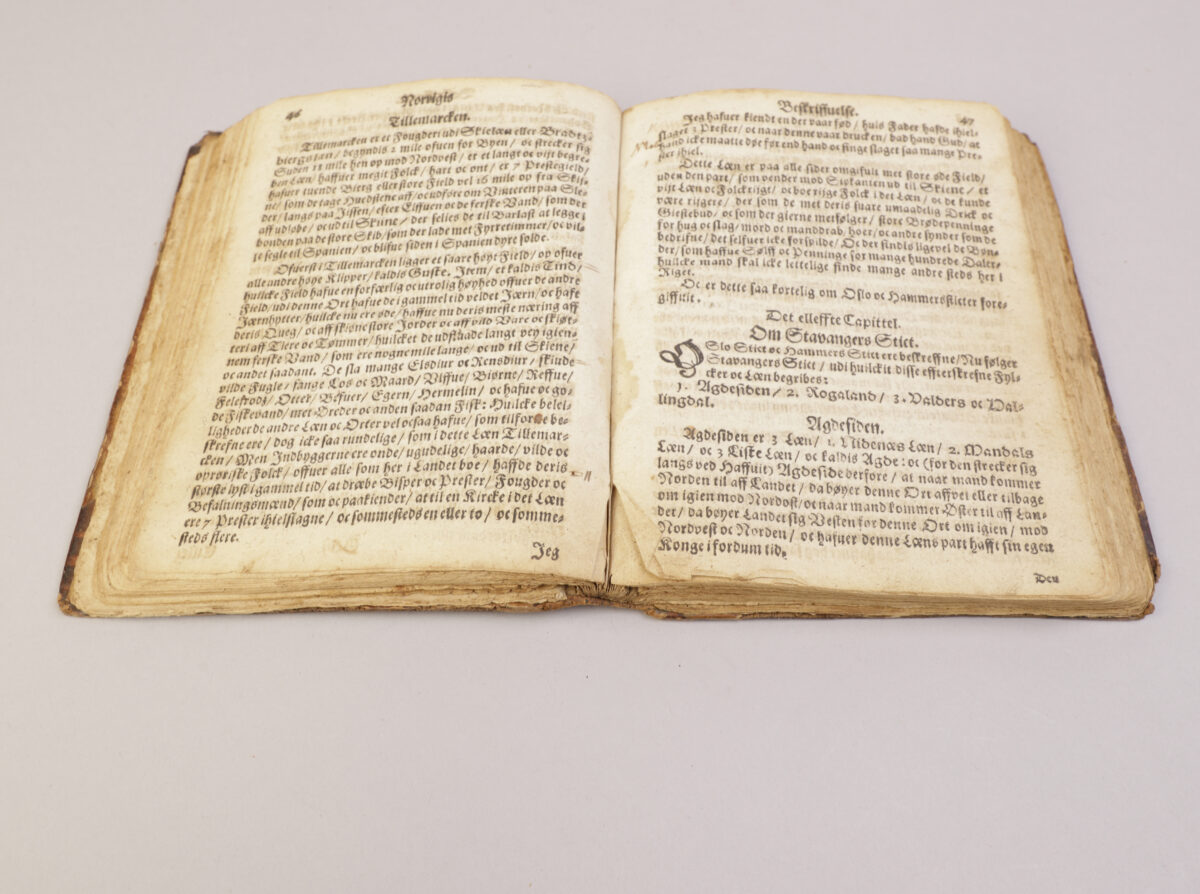 46
Norrigis
Tillemarcken.
Tillemarcken er et Fougderi udi Skielæn eller Bradtz-
biergs Læn / begyndis 2 mile ofuen for Byen / oc strecker sig
Suden 12 mile hen op mod Nordvest / er et langt oc vijt begre-
ben Læn / haffuer megit Folck / hart oc ont / er 7 Prestegield /
hafuer tuende Bierg eller store Field vel 16 mile op fra Skij-
ne / som de tage Huedstene aff / oc udføre om Vinteren paa Sle-
der / langs paa Jissen / efter Elffuen oc de ferske Vand / som der
aff udløbe / oc ud til Skine / der selies de til Barlast at legge i
bonden paa de store Skib / som der lade met Fyrretimmer / oc vil-
le segle til Spanien / oc blifue siden i Spanien dyre solde.
Ofuerst i Tillemarcken ligger et saare høyt Field / op ofuer
alle andre høye Klipper / kaldis Guske. Item / et kaldis Tind /
huilcke Field hafue en forfærlig oc utrolig høyhed offuer de andre
Field / udi denne Ort hafue de i gammel tid veldet Jærn / oc hafft
Jærnhytter / huilcke nu ere øde / haffue nu deris meste næring aff
deris Queg / oc aff skiøne store Jorder oc aff vild Vare oc skiør-
teri aff Tiere oc Tømmer / huilcket de udflaade langt vey igien-
nem ferske Vand / som ere nogne mile lange / oc ud til Skiene /
oc andet saadant. De sla mange Elsdiur oc Rensdiur / skiude
vilde Fugle / fange Los oc Maard / Ulffue / Biørne / Reffue /
Felefrods / Otter / Befuer / Egern / Hermelin / oc hafue oc go-
de Fiskevand / met Ørreder oc anden saadan Fisk: Huilcke belei-
ligheder de andre Læn oc Orter vel ocsaa hafue / som tilforne be-
skrefne ere / dog icke saa rundelige / som i dette Læn Tillemar-
cken / Men Indbyggerne ere onde / ugudelige / haarde / vilde oc
oprøriske Folck / offuer alle som her i Landet boe / haffde deris
største lyst i gammel tid / at dræbe Bisper oc Prester / Fougder oc
Befalningsmænd / som oc paakiender / at til en Kircke i det Læn
ere 7 Prester ihielslagne / oc sommesteds en eller to / oc somme-
steds flere.
Jeg
Beskriffuelse.
47
Jeg hafuer kiendt en der vaar fød / huis Fader hafde ihiel-
slaget 3 Prester / oc naar denne vaar drucken / bad hand Gud / at
hand icke maatte døe før end hand oc finge slaget saa mange Pre-
ster ihiel.
Dette Læn er paa alle sider omgifuit met store øde Field /
uden den part / som vender mod Siøkanten ud til Skiene / et
vijt Læn oc Folckrijgt / oc boe rijge Folck i det Læn / oc de kunde
være rijgere / der som de met deris suare umaadelig Drick oc
Giestebud / oc som der gierne metfølger / store Brødepenninge
for hug oc slag / mord oc manddrab / hoer / oc andre synder som de
bedrifue / det selfuer icke forspilde / Oc der findis ligevel de Bøn-
der / som haffue Sølff oc Penninge for mange hundrede Daler /
huilcke mand skal icke lettelige finde mange andre steds her i
Riget.
Oc er dette saa kortelig om Oslo oc Hammerstictet fore-
giffuit.
Det elleffte Capittel.
Om Stavangers Stict.
OSlo Stict oc Hammers Stict ere beskreffne / Nu følger
Stavangers Stict / udi huilckit disse effterskrefne Fyl-
cker oc Læn begribes:
1. Agdesiden / 2. Rogaland / 3. Valders oc Hal-
lingdal.
Agdesiden.
Agdesiden er 3 Læn / 1. Nidenæs Læn / 2. Mandals
Læn / oc 3 Liste Læn / oc kaldis Agde: oc (for den strecker sig
langs ved Haffuit) Agdeside derfore / at naar mand kommer
Norden til aff Landet / da bøyer denne Ort aff vei eller tilbage
om igien mod Nordost / oc naar mand kommer Øster til aff Lan-
det / da bøyer Landet sig Vesten for denne Ort om igien / mod
Nordvest oc Norden / oc hafuer denne Læns part hafft sin egen
Konge i fordum tid.
Den